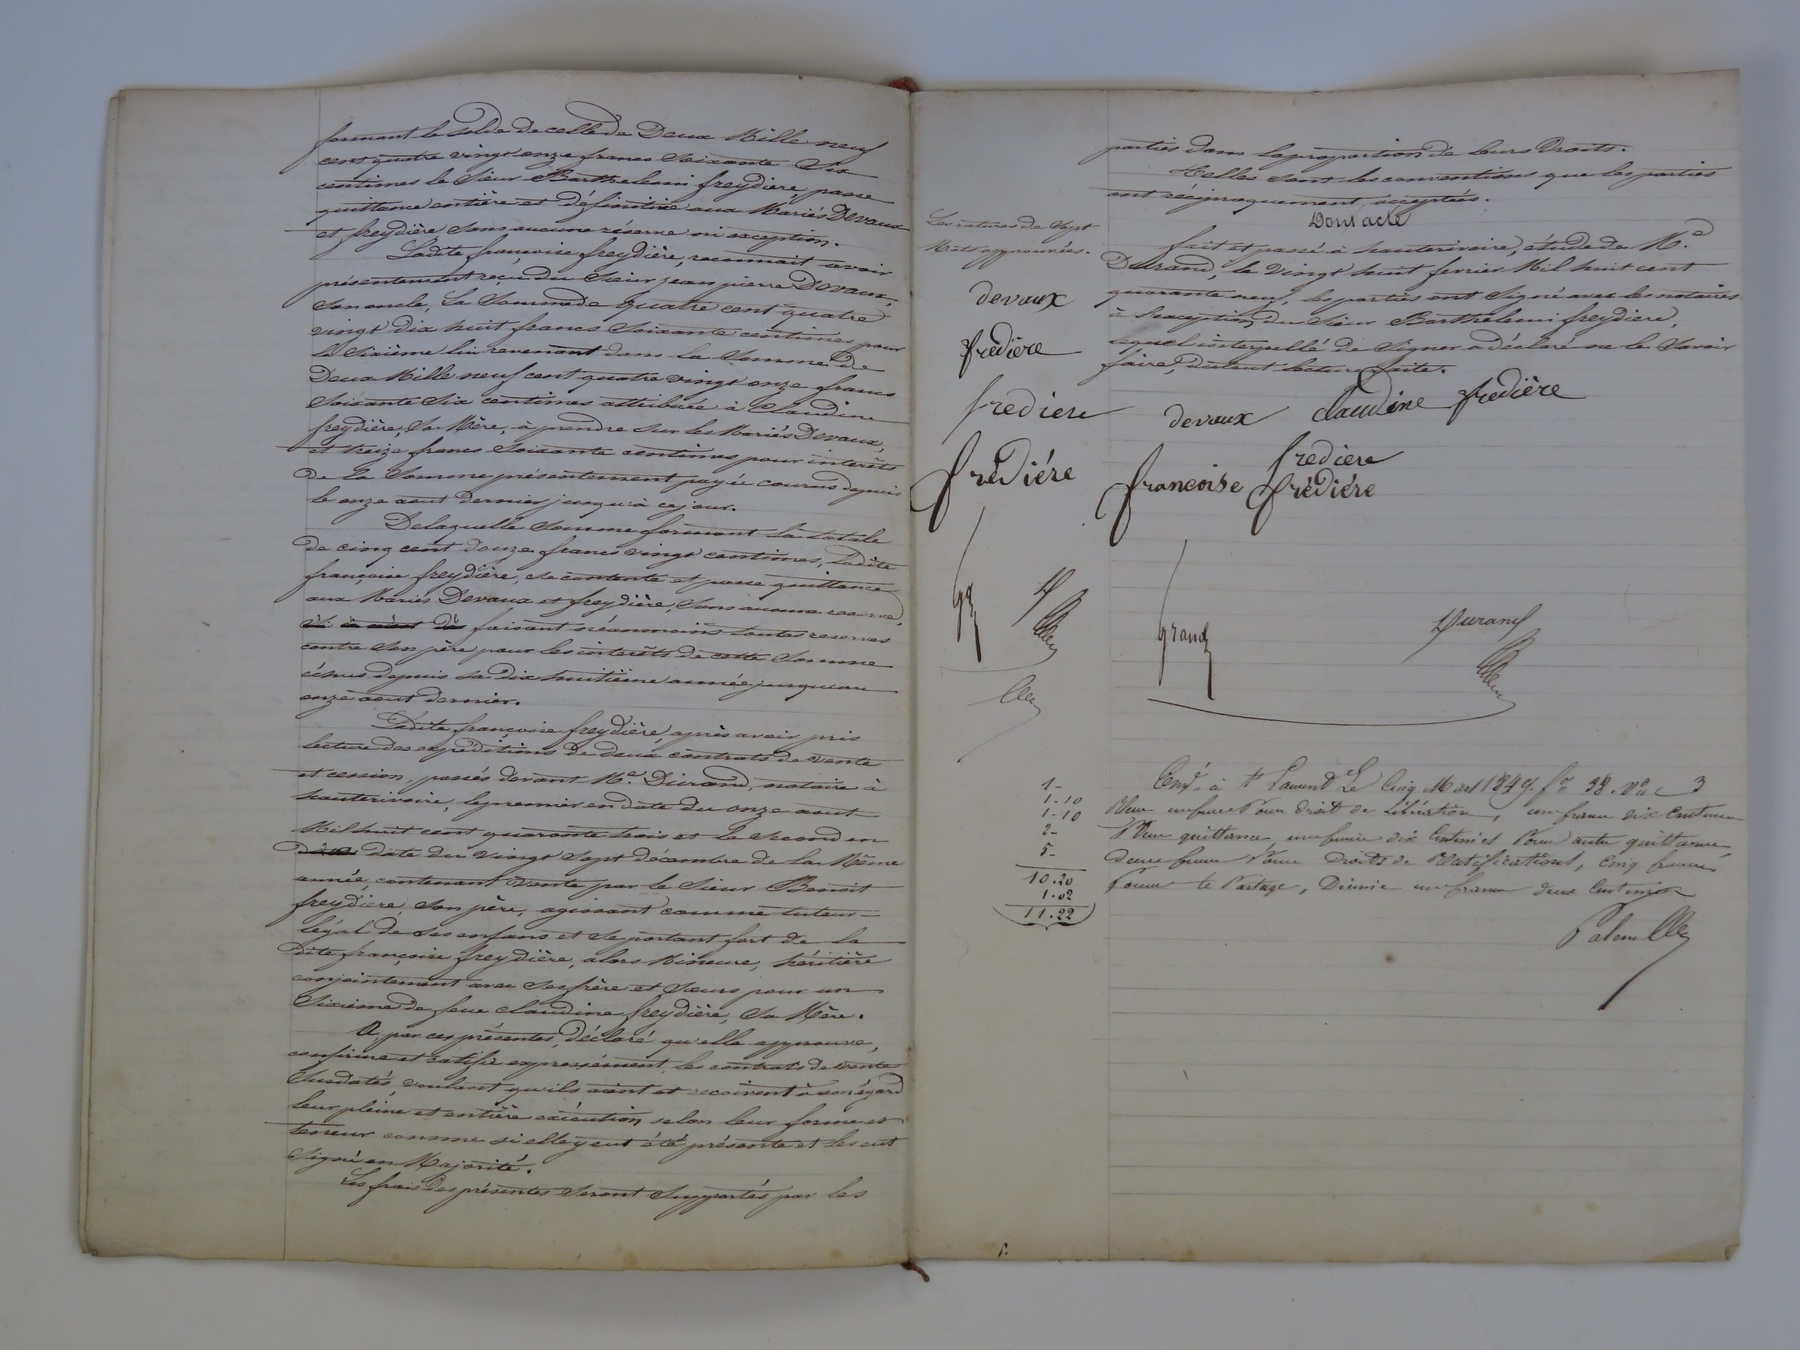 formant le solde de celle de Deux Mille neuf
cent quatre vingt onze francs Soixante Six
centimes le Sieur Barthelemi freydiere, passe
quittance entière et définitive aux Mariés Devaux
et freydière, Sans aucune réserve ni exception.
Ladite françoise freydière, reconnait avoir
présentement reçu du Sieur jean pierre Devaux,
Son oncle, La Somme de quatre cent quatre
vingt dix huit francs Soixante centimes pour
le Sixième lui revenant dans la Somme de
Deux Mille neuf cent quatre vingt onze francs
Soixante Six centimes attribuée à Claudine
freydière, Sa Mère, à prendre sur les Mariés Devaux,
et treize francs Soixante centimes pour intérêts
de La Somme présentement payée courus depuis
le onze aout dernier jusqu'à ce jour.
Delaquelle Somme formant la totale
de cinq cent douze francs vingt centimes, Ladite
françoise freydière, se contente et passe quittance
aux Mariés Devaux et freydière, Sans aucune reserve,
faisant néanmoins toutes reserves
contre Son père pour les intérêts de cette Somme
échus depuis sa dix huitième année jusqu'au
onze aout dernier.
Ladite françoise freydière, après avoir pris
lecture des expéditions de deux contrats de vente
et cession, passés devant Me. Durand, notaire à
hauterivoire, le premier en date du onze aout
Mil huit cent quarante trois et le second en
date du vingt Sept décembre de la Même
année, contenant vente par le Sieur Benoit
freydiere, Son père, agissant comme tuteur
légal de ses enfans et se portant fort de la
dite françoise freydière, alors Mineure, héritière
conjointement avec ses frère et Sœurs pour un
Sixieme de feue claudine freydière, Sa Mère.
A, par ces présentes, déclaré qu'elle approuve,
confirme et ratifie expressément les contrats de ventes
Susdatés, voulant qu'ils aient et reçoivent à son égard
leur pleine et entière exécution selon leur forme et
teneur comme si elle y eut été présente et les eut
Signé en Majorité.
Les frais des présentes Seront Supportés par les
parties dans la proportion de leurs Droits.
Telles Sont les conventions que les parties
ont réciproquement acceptées.
Dont acte
fait et passé à hauterivoire, étude de Me.
Durand, le vingt huit fevrier Mil huit cent
quarante neuf, les parties ont Signé avec les notaires
à l'exception du Sieur Barthelemi freydiere,
lequel interpellé de Signer a déclaré ne le Savoir
faire, dument lecture faite.
Les ratures de Sept
Mots approuvées.
devaux
fredière
fredière
frédiére
devaux claudine fredière
fredière
francoise frédiére
grand
Durand
Enr. à St Laurent Le Cinq Mars 1849. fo 38. Vo C 3
Reçu un franc Pour droit de Libération, un franc dix Centimes
Pour quittance un franc dix Centimes Pour autre quittance,
deux francs Pour Droits de Ratifications, Cinq francs
Pour le Partage, Décime un franc deux Centimes
1-
1-10
1-10
2-
5-
10.20
1.02
11.22